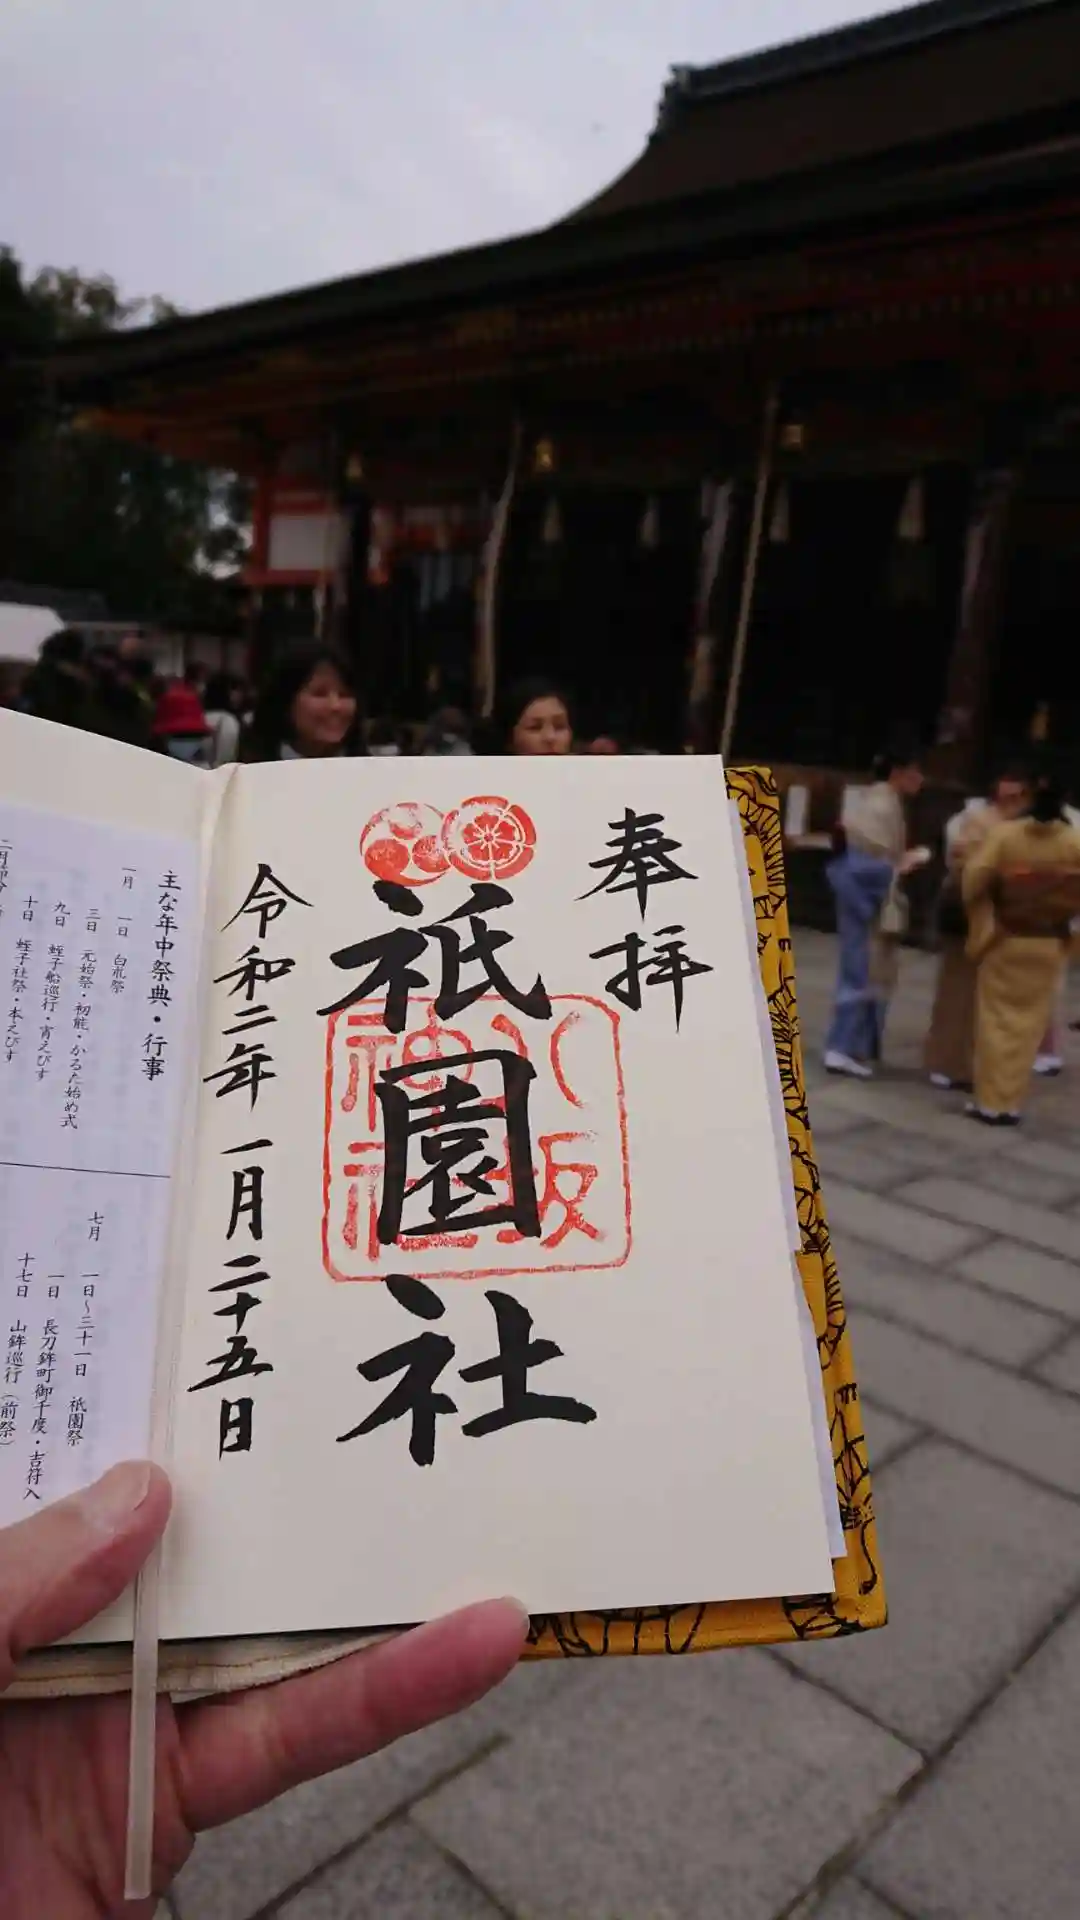 奉拝
祇園社
八坂
神社
令和二年一月二十五日
主な年中祭典・行事
一月
一日 白朮祭
三日 元始祭・初能・かるた始め式
九日 蛭子船巡行・宵えびす
十日 蛭子社祭・本えびす
七月
一日～三十一日 祇園祭
一日 長刀鉾町御千度・吉符入
十七日 山鉾巡行（前祭）